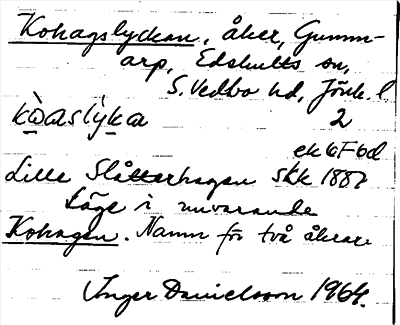 Kohagslyckan, åker, Gumm-
arp, Edshults sn,
S. Vedbo hd, Jönk. l.
kàaslỳka 2
ek 6F6d
Lille Slåtterhagen skk 1887
Läge i nuvarande
Kohagen. Namn för två åkrar.
Inger Danielsson 1964.